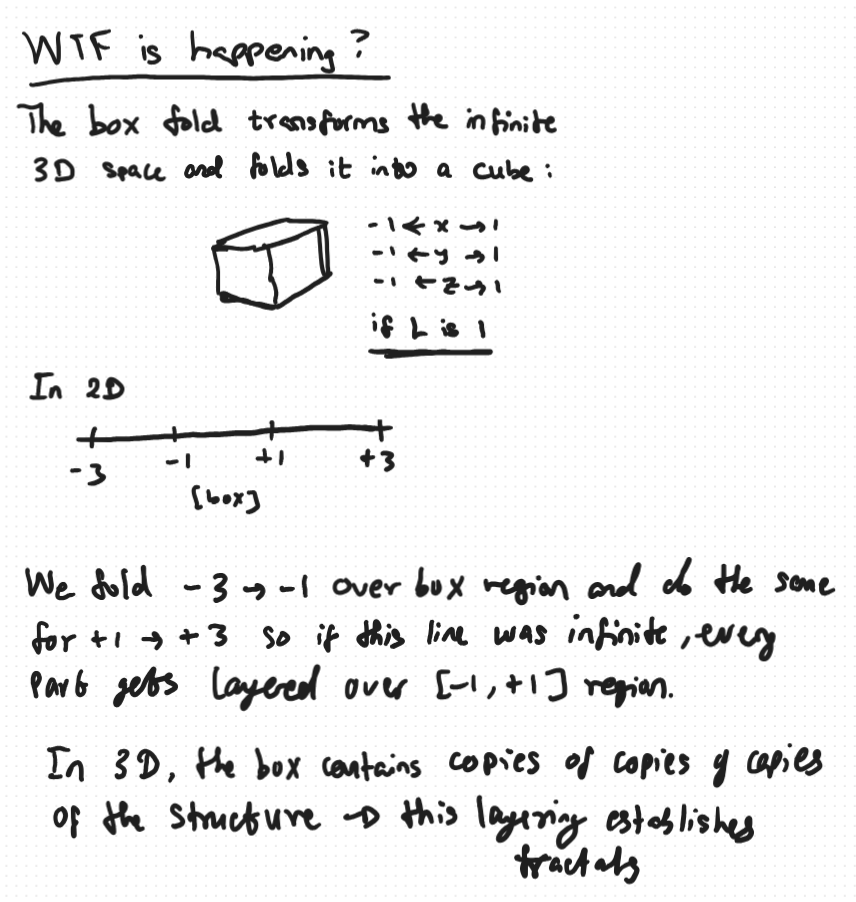 WTF is happening?
The box fold transforms the infinite
3D space and folds it into a cube:
-1 ← x → 1
-1 ← y → 1
-1 ← z → 1
if L is 1
In 2D
-3 -1 +1 +3
[box]
We fold -3 → -1 over box region and do the same
for +1 → +3 so if this line was infinite, every
part gets layered over [-1, +1] region.
In 3D, the box contains copies of copies of copies
of the structure → this layering establishes
fractals